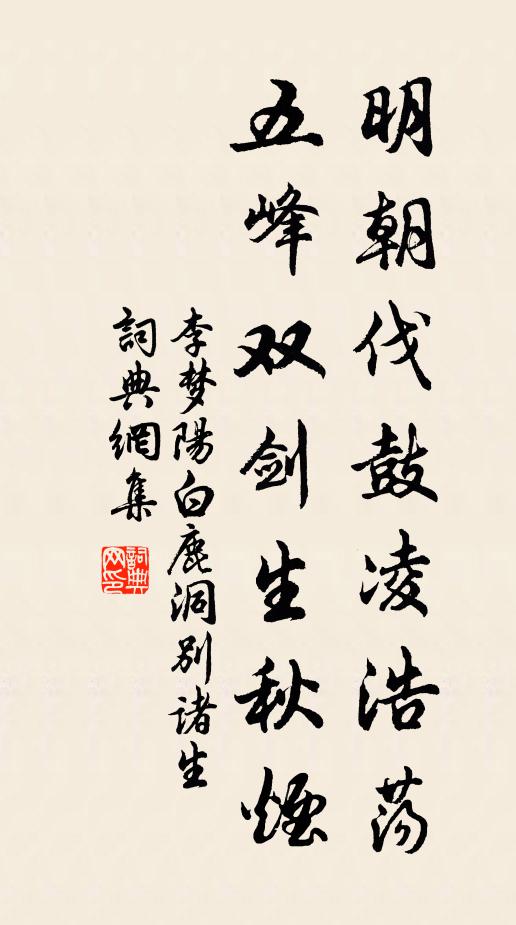 明朝伐鼓凌浩荡
五峰双剑生秋煙
李梦陽白鹿洞别诸生
詞典網集
詞典网印